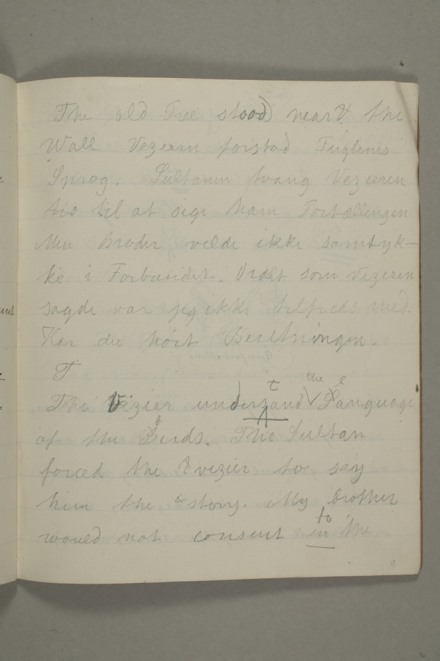 The old Tree stood near the
Wall Vezeren forstod Fuglenes
Sprog. Sultanen tvang Vezieren
til at sige ham Fortællingen
Min Broder vilde ikke samtyk-
ke i Forbundet. Vezieren
sagde var jeg ikke tilfreds med.
Har du hørt Beretningen.
T
The Vizier understand the Language
of the Birds. The Sultan
forced the vezier to say
him the a story. My brother
would not consent in to the